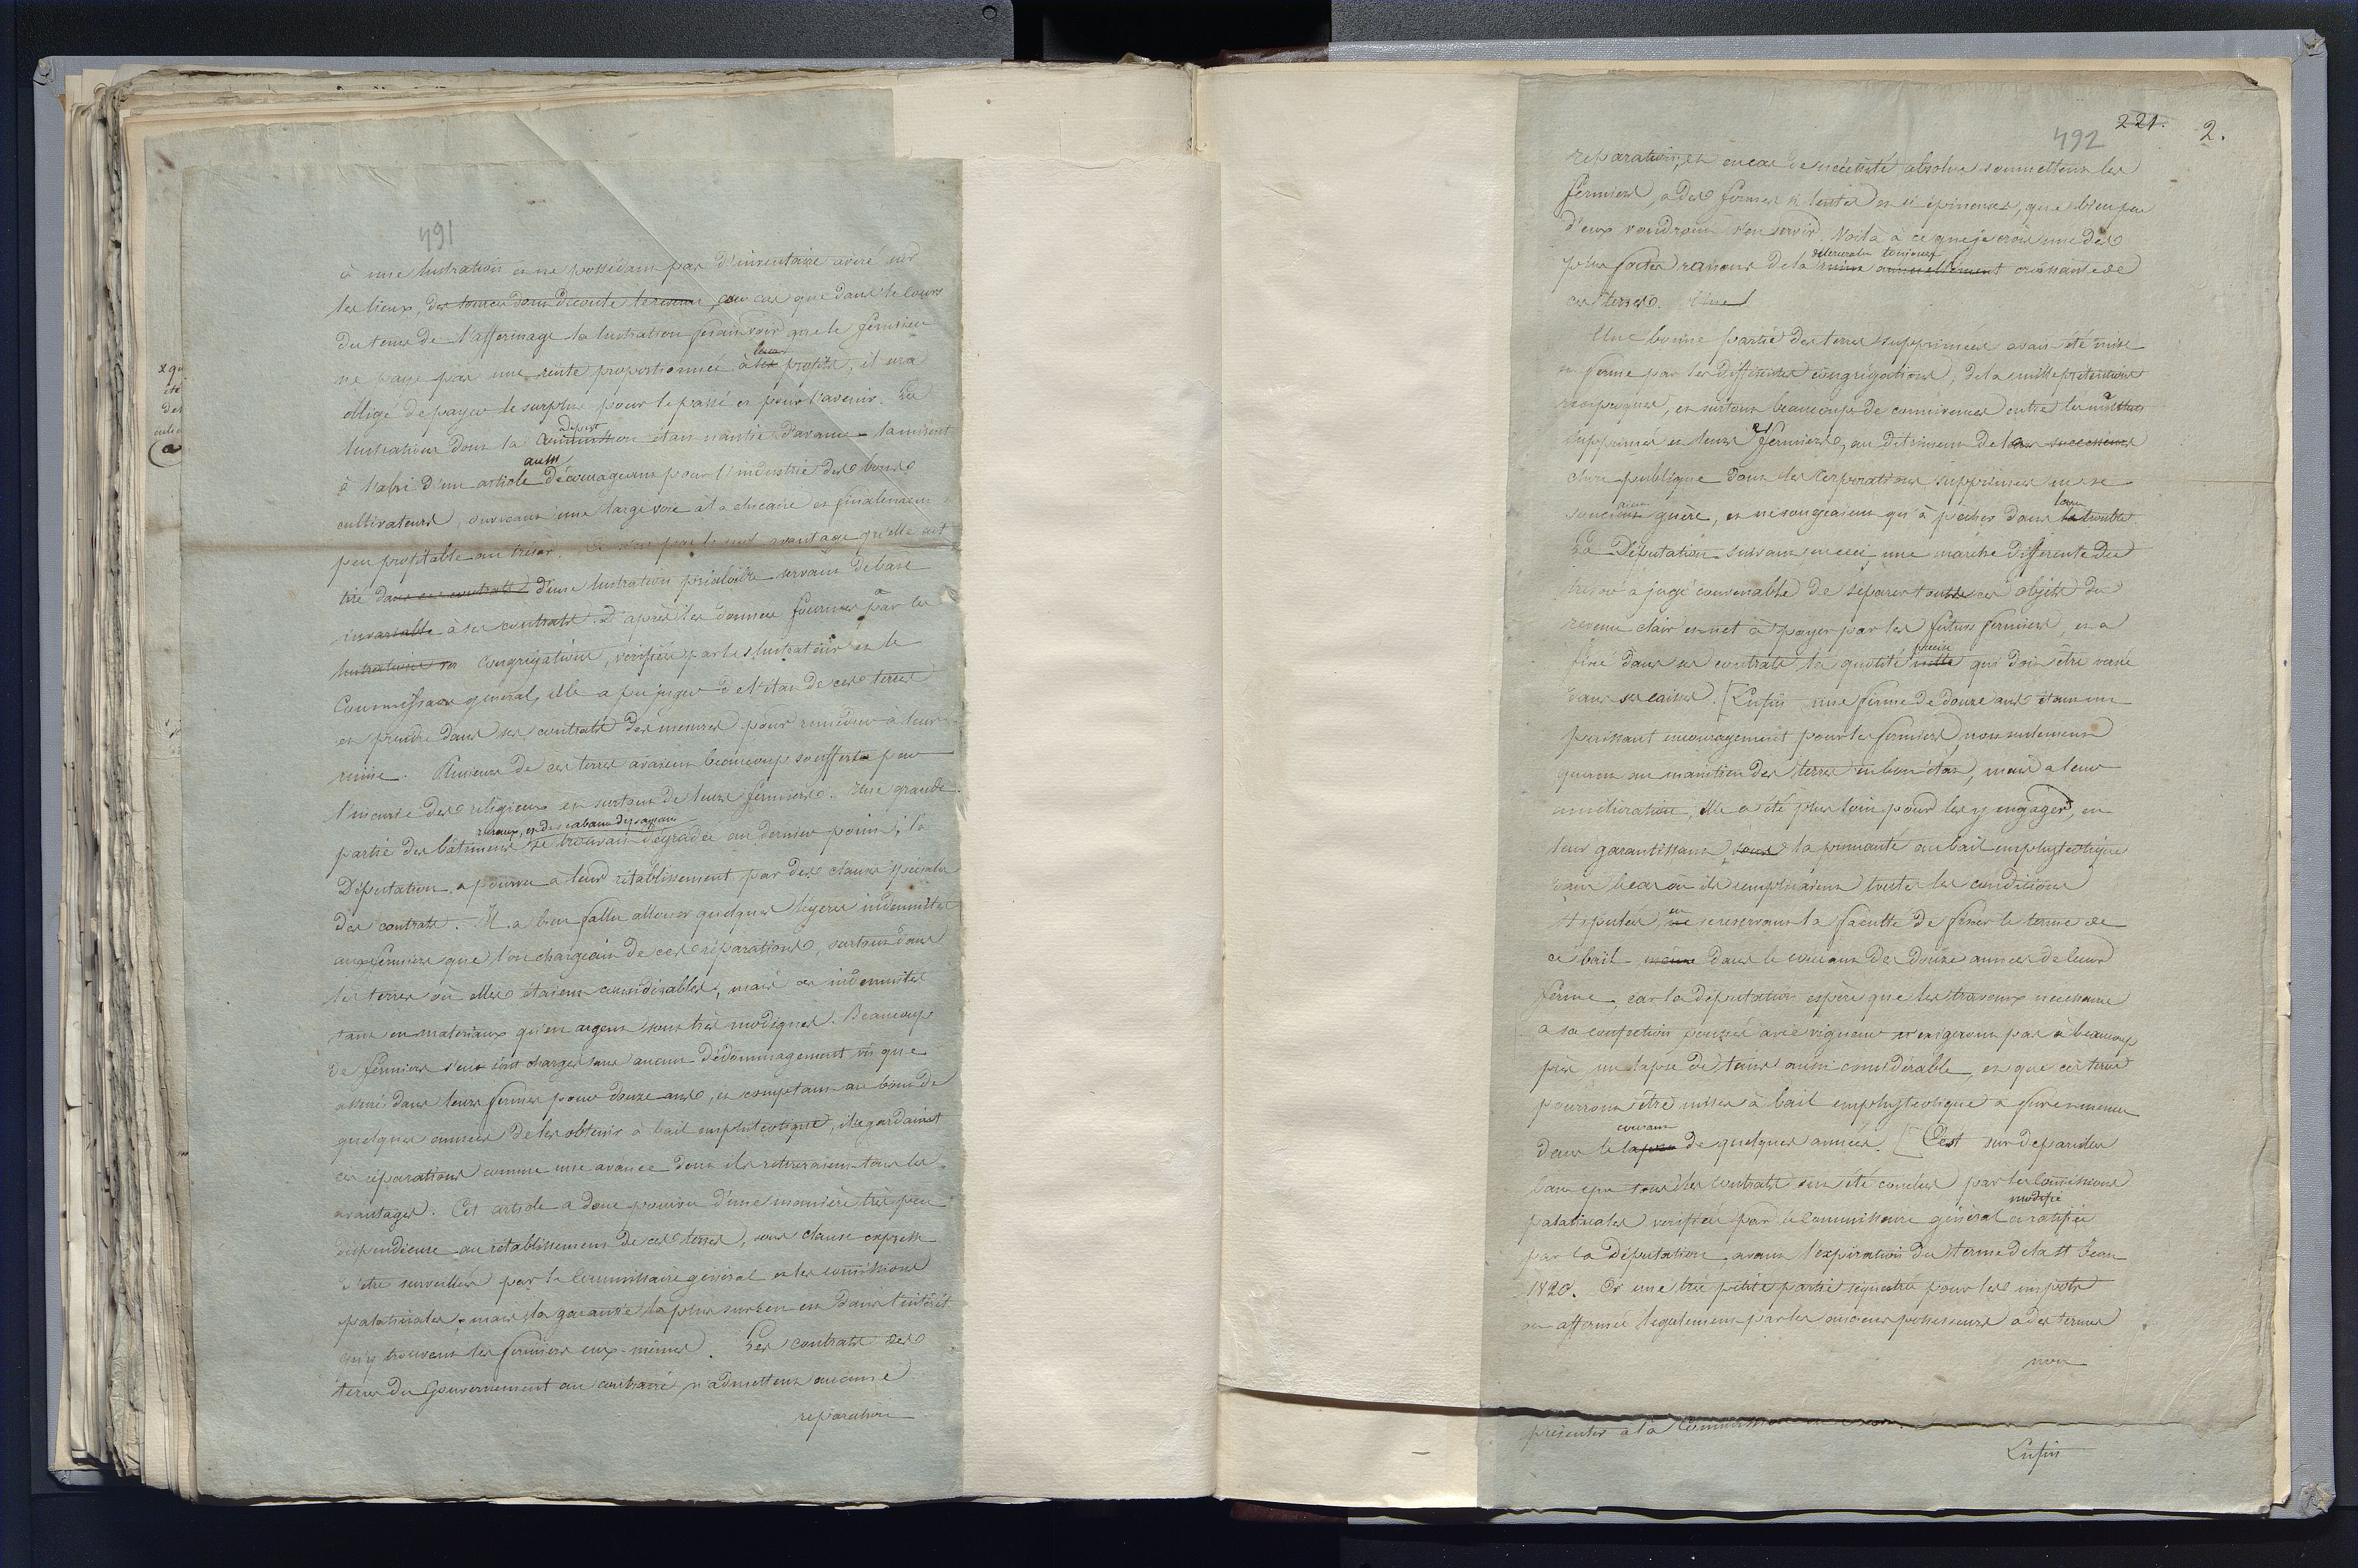 491
à une lustration et ne possédant pas d'inventaire avéré sur
les lieux, des sources dont découle le revenu, en cas que dans le cours
du tems de l'affermage la lustration ferait voir que le fermier
leurs
ne paye pas une rente proportionnée à ses profits, il sera
obligé de payer le surplus pour le passé et pour l'avenir. La
lustration dont la
à l'abri d'un article aussi décourageant pour l'industrie des bons
cultivateurs, ouvrant une large voie à la chicane et finalement
peu profitable au trésor. Ce n'est pas le seul avantage qu'elle ait
tiré dans ces contrats d'une lustration préalable servant de base
invariable à ses contrats. D'après les données fournies par les
lustrations Congrégations, vérifiées par les lustrateurs et le
Commissaire général, elle a pu juger de l'état de ces terres
et prendre dans ses contrats des mesures pour remédier à leur
ruine. Plusieurs de ces terres avaient beaucoup souffertes par
l'incurie des religieux et surtout de leurs fermiers. Une grande
ruraux, et des cabanes de paysans
partie des bâtimens se trouvait dégradée au dernier point; la
Députation a pourvu à leur rétablissement par des clauses spéciales
des contrats. Il a bien fallu allouer quelques légères indemnités
aux fermiers que l'on chargeait de ces réparations, surtout dans
les terres où elles étaient considérables, mais ces indemnités
tant en materiaux qu'en argent sont très modiques. Beaucoup
de fermiers s'en sont chargés sans aucun dédommagement vû que
assuré dans leurs fermes pour douze ans, et comptant au bout de
quelques années de les obtenir à bail emphytéotique, ils regardaient
ces réparations comme une avance dont ils retireraient tous les
avantages. Cet article a donc pourvu d'une manière très peu
dispendieuse au rétablissement de ces terres, sous clause expresse
d'être surveillés par le Commissaire général et les commissions
palatinales; mais la garantie la plus sure en est dans l'intérêt
qu'y trouvent les fermiers eux-mêmes. Les contrats des
terres du Gouvernement au contraire n'admettent aucune
réparation
221.
492
2.
réparation, et en cas de nécessité absolue soumettent les
fermiers, à des formes si lentes et si épineuses, que bien peu
d'eux voudront s'en servir. Voilà à ce que je crois une des
détérioration toujours
plus fortes raisons de la ruine annuellement croissante de
ces terres. Une
Une bonne partie des terres supprimées avait été mise
en ferme par les différentes congrégations; de là mille prétentions
réciproques, et surtout beaucoup de connivences entre les
supprimés et leurs fermiers, au détriment de la
chose publique dont les Corporations supprimées ne se
souciaient guère, et ne songeaient qu'à pêcher dans l'eau trouble.
La Députation suivant en ceci une marche differente du
trésor a jugé convenable de séparer toutes ces objets du
revenu clair et net à payer par les futurs fermiers, et a
précise
fixé dans ses contrats la quotité nette qui doit être versée
dans ses caisses. [Enfin une ferme de douze ans étant un
puissant encouragement pour les fermiers non seulement
quant au maintien des terres en bon état, mais a leur
amélioration, elle a été plus loin pour les y engager, en
leur garantissant la primauté au bail emphytéotique
dans le cas où ils rempliraient toutes les conditions
en
stipulées, se reservant la faculté de fixer le terme de
ce bail même dans le courant des douze années de leur
ferme, car la députation espère que les travaux nécessaires
a sa confection poussés avec vigueur n'exigeront pas à beaucoup
près un laps de tems aussi considérable, et que ces terres
pourront être mises à bail emphytéotique a fur et mesure
courant
dans le laps de quelques années. [C'est sur de pareilles
bases que tous les contrats ont été conclus par les Commissions
modifié
palatinales verifiés par le Commissaire général et ratifiés
par la Députation avant l'expiration du terme de la St Jean
1820. Or une très petite partie sequestrée pour les impots
ou affermée legalement par les anciens possesseurs a des termes
non
présenter à la Commission
Enfin